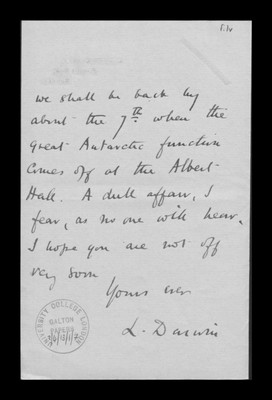 we shall be back by
about the 7th when the
great Antarctic function
comes off at the Albert
Hall. A dull affair, I
fear, as no one will hear.
I hope you are not off
very soon
Yours ever
L. Darwin
UNIVERSITY COLLEGE LONDON
GALTON
PAPERS